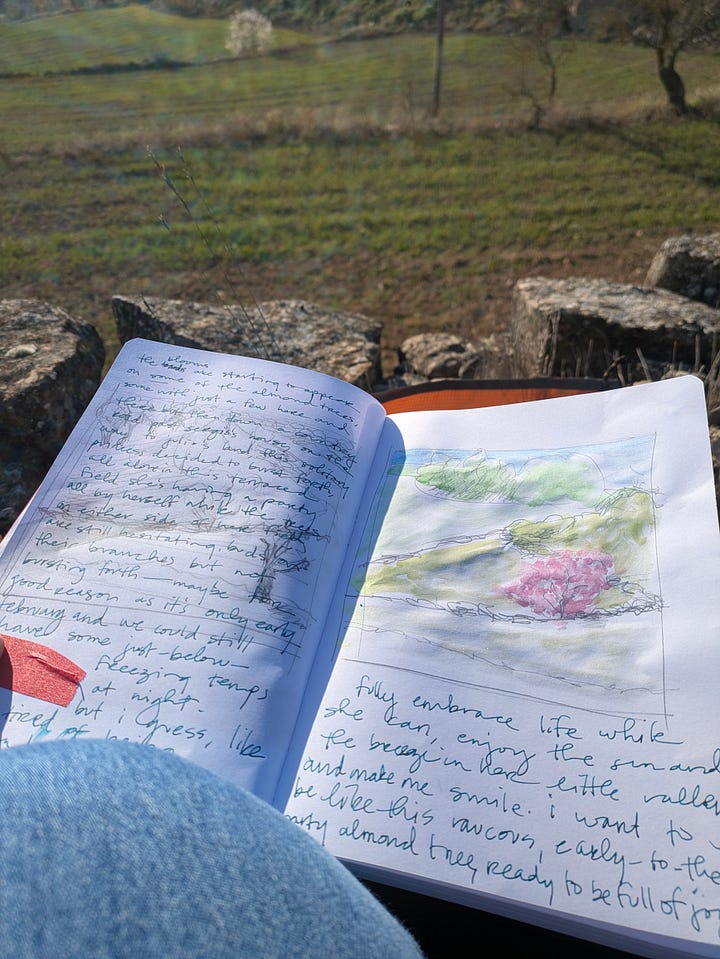 blooms
the are starting to appear
on some of the almond trees,
some with just a few here and
there but the
house on the
way to and this solitary
decided to burst forth,
all alone in this terraced
field she's having a party
all by herself while the trees
on either side of here
are still hesitating, buds on
their branches but not
bursting forth — maybe
good reason as it's only early
february and we could still
have some just-below-
freezing temps
at night.
but i guess, like
fully embrace life while
she can, enjoy the sun and
the breeze in her little valley
and make me smile. i want to
be like this raucous, early-to-the-
party almond tree, ready to be full of joy